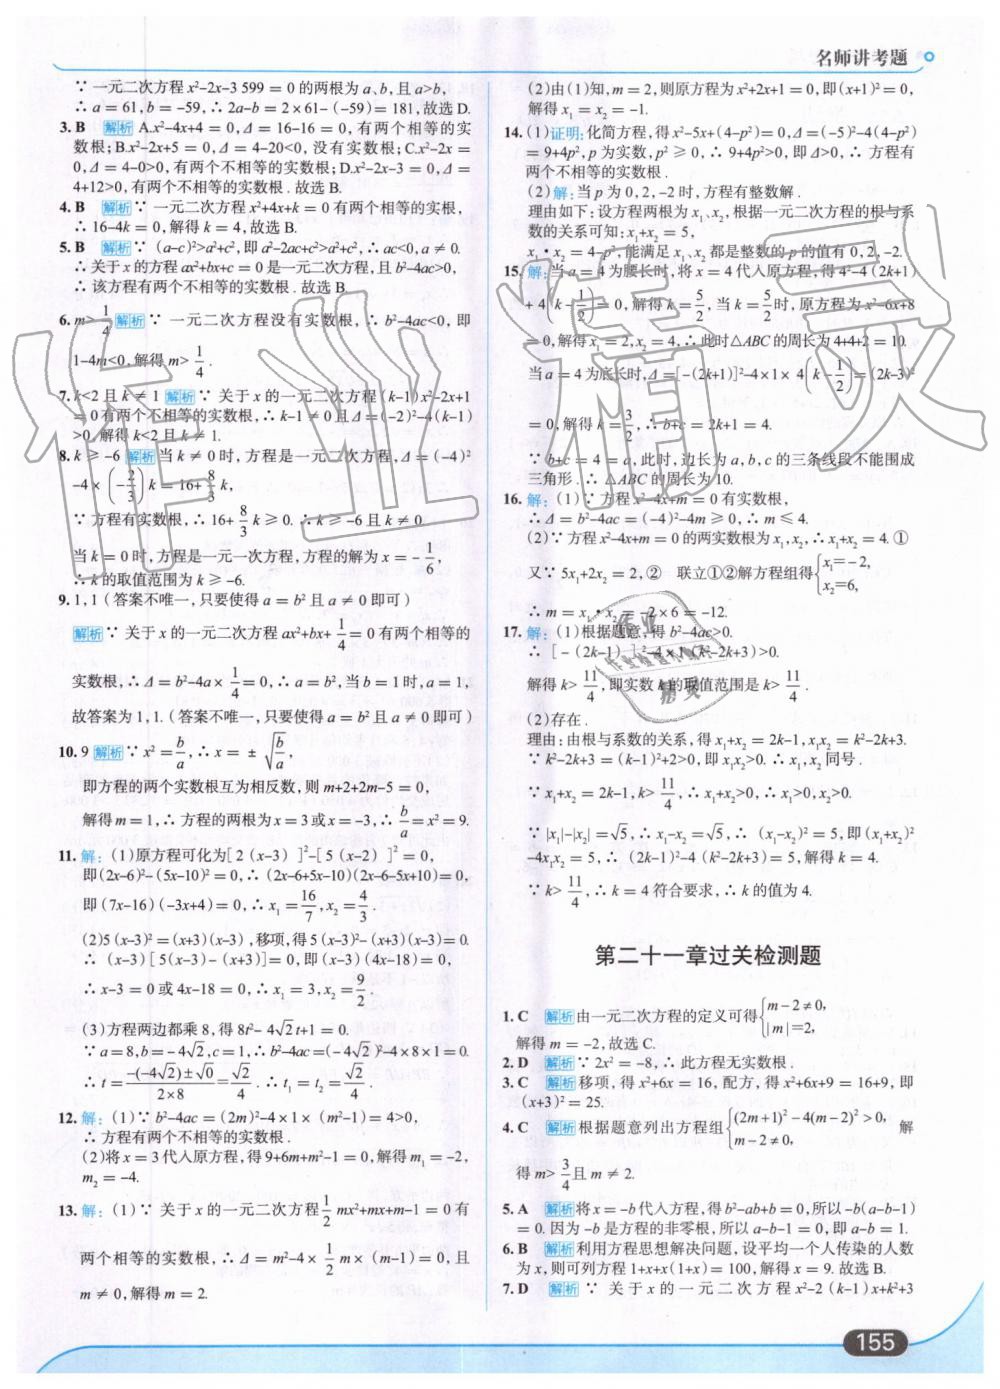 名师讲考题
∵ 一元二次方程x²-2x-3 599 = 0 的两根为a、b,且a>b,
∴ a = 61, b = -59, ∴ 2a-b = 2×61-(-59) = 181,故选 D.
3. B 解析 A.x²-4x+4 = 0, Δ = 16-16 = 0, 有两个相等的实
数根;B.x²-2x+5 = 0, Δ = 4-20<0, 没有实数根;C.x²-2x =
0, Δ = 4-0>0, 有两个不相等的实数根;D.x²-2x-3 = 0, Δ =
4+12>0, 有两个不相等的实数根. 故选 B.
4. B 解析 ∵ 一元二次方程x²+4x+k = 0 有两个相等的实根,
∴ 16-4k = 0, 解得 k = 4, 故选 B.
5. B 解析 ∵ (a-c)²>a²+c², 即 a²-2ac+c²>a²+c², ∴ ac<0, a ≠ 0.
∴ 关于 x 的方程 ax²+bx+c = 0 是一元二次方程, 且 b²-4ac>0,
∴ 该方程有两个不相等的实数根. 故选 B.
6. m>1/4 解析 ∵ 一元二次方程没有实数根, ∴ b²-4ac<0, 即
1-4m<0, 解得 m> 1/4 .
7. k<2 且 k ≠ 1 解析 ∵ 关于 x 的一元二次方程 (k-1)x²-2x+1
= 0 有两个不相等的实数根, ∴ k-1 ≠ 0 且 Δ = (-2)²-4(k-1)
>0, 解得 k<2 且 k ≠ 1.
8. k ≥ -6 解析 当 k ≠ 0 时, 方程是一元二次方程, Δ = (-4)²
-4×(-2/3)k = 16+ 8/3 k,
∵ 方程有实数根, ∴ 16+ 8/3 k ≥ 0. ∴ k ≥ -6 且 k ≠ 0.
当 k = 0 时, 方程是一元一次方程, 方程的解为 x = - 1/6 ,
∴ k 的取值范围为 k ≥ -6.
9. 1, 1 (答案不唯一, 只要使得 a = b² 且 a ≠ 0 即可)
解析 ∵ 关于 x 的一元二次方程 ax²+bx+ 1/4 = 0 有两个相等的
实数根, ∴ Δ = b²-4a× 1/4 = 0, ∴ a = b², 当 b = 1 时, a = 1,
故答案为 1, 1. (答案不唯一, 只要使得 a = b² 且 a ≠ 0 即可)
10. 9 解析 ∵ x² = b/a , ∴ x = ± √(b/a)
即方程的两个实数根互为相反数, 则 m+2+2m-5 = 0,
解得 m = 1, ∴ 方程的两根为 x = 3 或 x = -3, ∴ b/a = x² = 9.
11. 解: (1) 原方程可化为 [2(x-3)]²-[5(x-2)]² = 0,
即(2x-6)²-(5x-10)² = 0, ∴ (2x-6+5x-10)(2x-6-5x+10)=0,
即 (7x-16)(-3x+4) = 0, ∴ x₁ = 16/7 , x₂ = 4/3 .
(2)5(x-3)² = (x+3)(x-3), 移项, 得 5(x-3)²-(x+3)(x-3)= 0.
∴ (x-3)[5(x-3)-(x+3)]= 0, 即 (x-3)(4x-18)= 0,
∴ x-3 = 0 或 4x-18 = 0, ∴ x₁ = 3, x₂ = 9/2 .
(3)方程两边都乘 8, 得 8t²- 4√2 t+1 = 0.
∵ a = 8, b = - 4√2 , c = 1, ∴ b²-4ac = (- 4√2 )²-4×8×1 = 0.
∴ t = (-(-4√2)±√0)/(2×8) = √2/4 . ∴ t₁ = t₂ = √2/4
12. 解: (1)∵ b²-4ac = (2m)²-4×1×(m²-1) = 4>0,
∴ 方程有两个不相等的实数根.
(2)将 x = 3 代入原方程, 得 9+6m+m²-1 = 0, 解得 m₁ = -2,
m₂ = -4.
13. 解: (1)∵ 关于 x 的一元二次方程 1/2 mx²+mx+m-1 = 0 有
两个相等的实数根, ∴ Δ = m²-4× 1/2 m×(m-1)= 0, 且
m ≠ 0, 解得 m = 2.
(2)由(1)知, m = 2, 则原方程为 x²+2x+1 = 0, 即 (x+1)² = 0,
解得 x₁ = x₂ = -1.
14. (1)证明: 化简方程, 得 x²-5x+(4-p²)= 0, Δ = (-5)²-4(4-p²)
= 9+4p², p 为实数, p² ≥ 0, ∴ 9+4p²>0, 即 Δ>0, ∴ 方程有
两个不相等的实数根.
(2)解: 当 p 为 0, 2, -2 时, 方程有整数解.
理由如下: 设方程两根为 x₁、x₂, 根据一元二次方程的根与系
数的关系可知: x₁+x₂ = 5,
x₁•x₂ = 4-p², 能满足 x₁、x₂ 都是整数的 p 的值有 0, 2, -2.
15. 解: 当 a = 4 为腰长时, 将 x = 4 代入原方程, 得 4²-4(2k+1)
+ 4(k-1/2)= 0, 解得 k = 5/2 , 当 k = 5/2 时, 原方程为 x²-6x+8
= 0, 解得 x₁ = 2, x₂ = 4, ∴ 此时△ABC 的周长为 4+4+2 = 10.
当 a = 4 为底长时, Δ = [-(2k+1)]²-4×1× 4(k-1/2)= (2k-3)²
= 0, 解得 k = 3/2 , ∴ b+c = 2k+1 = 4.
∵ b+c = 4 = a, 此时, 边长为 a, b, c 的三条线段不能围成
三角形. ∴ △ABC 的周长为 10.
16. 解: (1)∵ 方程 x²-4x+m = 0 有实数根,
∴ Δ = b²-4ac = (-4)²-4m ≥ 0, ∴ m ≤ 4.
(2)∵ 方程 x²-4x+m = 0 的两实数根为 x₁, x₂, ∴ x₁+x₂ = 4. ①
又∵ 5x₁+2x₂ = 2, ② 联立①②解方程组得{x₁= -2, x₂=6,
∴ m = x₁•x₂ = -2×6 = -12.
17. 解: (1)根据题意, 得 b²-4ac>0.
∴ [-(2k-1)]²-4×1(k²-2k+3)>0.
解得 k> 11/4 , 即实数 k 的取值范围是 k> 11/4 .
(2)存在.
理由: 由根与系数的关系, 得 x₁+x₂ = 2k-1, x₁x₂ = k²-2k+3.
∵ k²-2k+3 = (k-1)²+2>0, 即 x₁x₂>0. ∴ x₁, x₂ 同号.
∵ x₁+x₂ = 2k-1, k> 11/4 , ∴ x₁+x₂>0, ∴ x₁>0, x₂>0.
∵ |x₁|-|x₂| = √5, ∴ x₁-x₂ = √5, ∴ (x₁-x₂)² = 5, 即(x₁+x₂)²
-4x₁x₂ = 5, ∴ (2k-1)²-4(k²-2k+3)= 5, 解得 k = 4.
∵ k> 11/4 , ∴ k = 4 符合要求, ∴ k 的值为 4.
第二十一章过关检测题
1. C 解析 由一元二次方程的定义可得{m-2≠0, |m|=2,
解得 m = -2, 故选 C.
2. D 解析 ∵ 2x² = -8, ∴ 此方程无实数根.
3. C 解析 移项, 得 x²+6x = 16, 配方, 得 x²+6x+9 = 16+9, 即
(x+3)² = 25.
4. C 解析 根据题意列出方程组{(2m+1)²-4(m-2)²>0, m-2≠0, 解
得 m> 3/4 且 m ≠ 2.
5. A 解析 将 x = -b 代入方程, 得 b²-ab+b = 0, 所以 -b(a-b-1)
= 0. 因为 -b 是方程的非零根, 所以 a-b-1 = 0, 即 a-b = 1.
6. B 解析 利用方程思想解决问题, 设平均一个人传染的人数
为 x, 则可列方程 1+x+x(1+x) = 100, 解得 x = 9. 故选 B.
7. D 解析 ∵ 关于 x 的一元二次方程 x²-2(k-1)x+k²+3
155
作业精灵